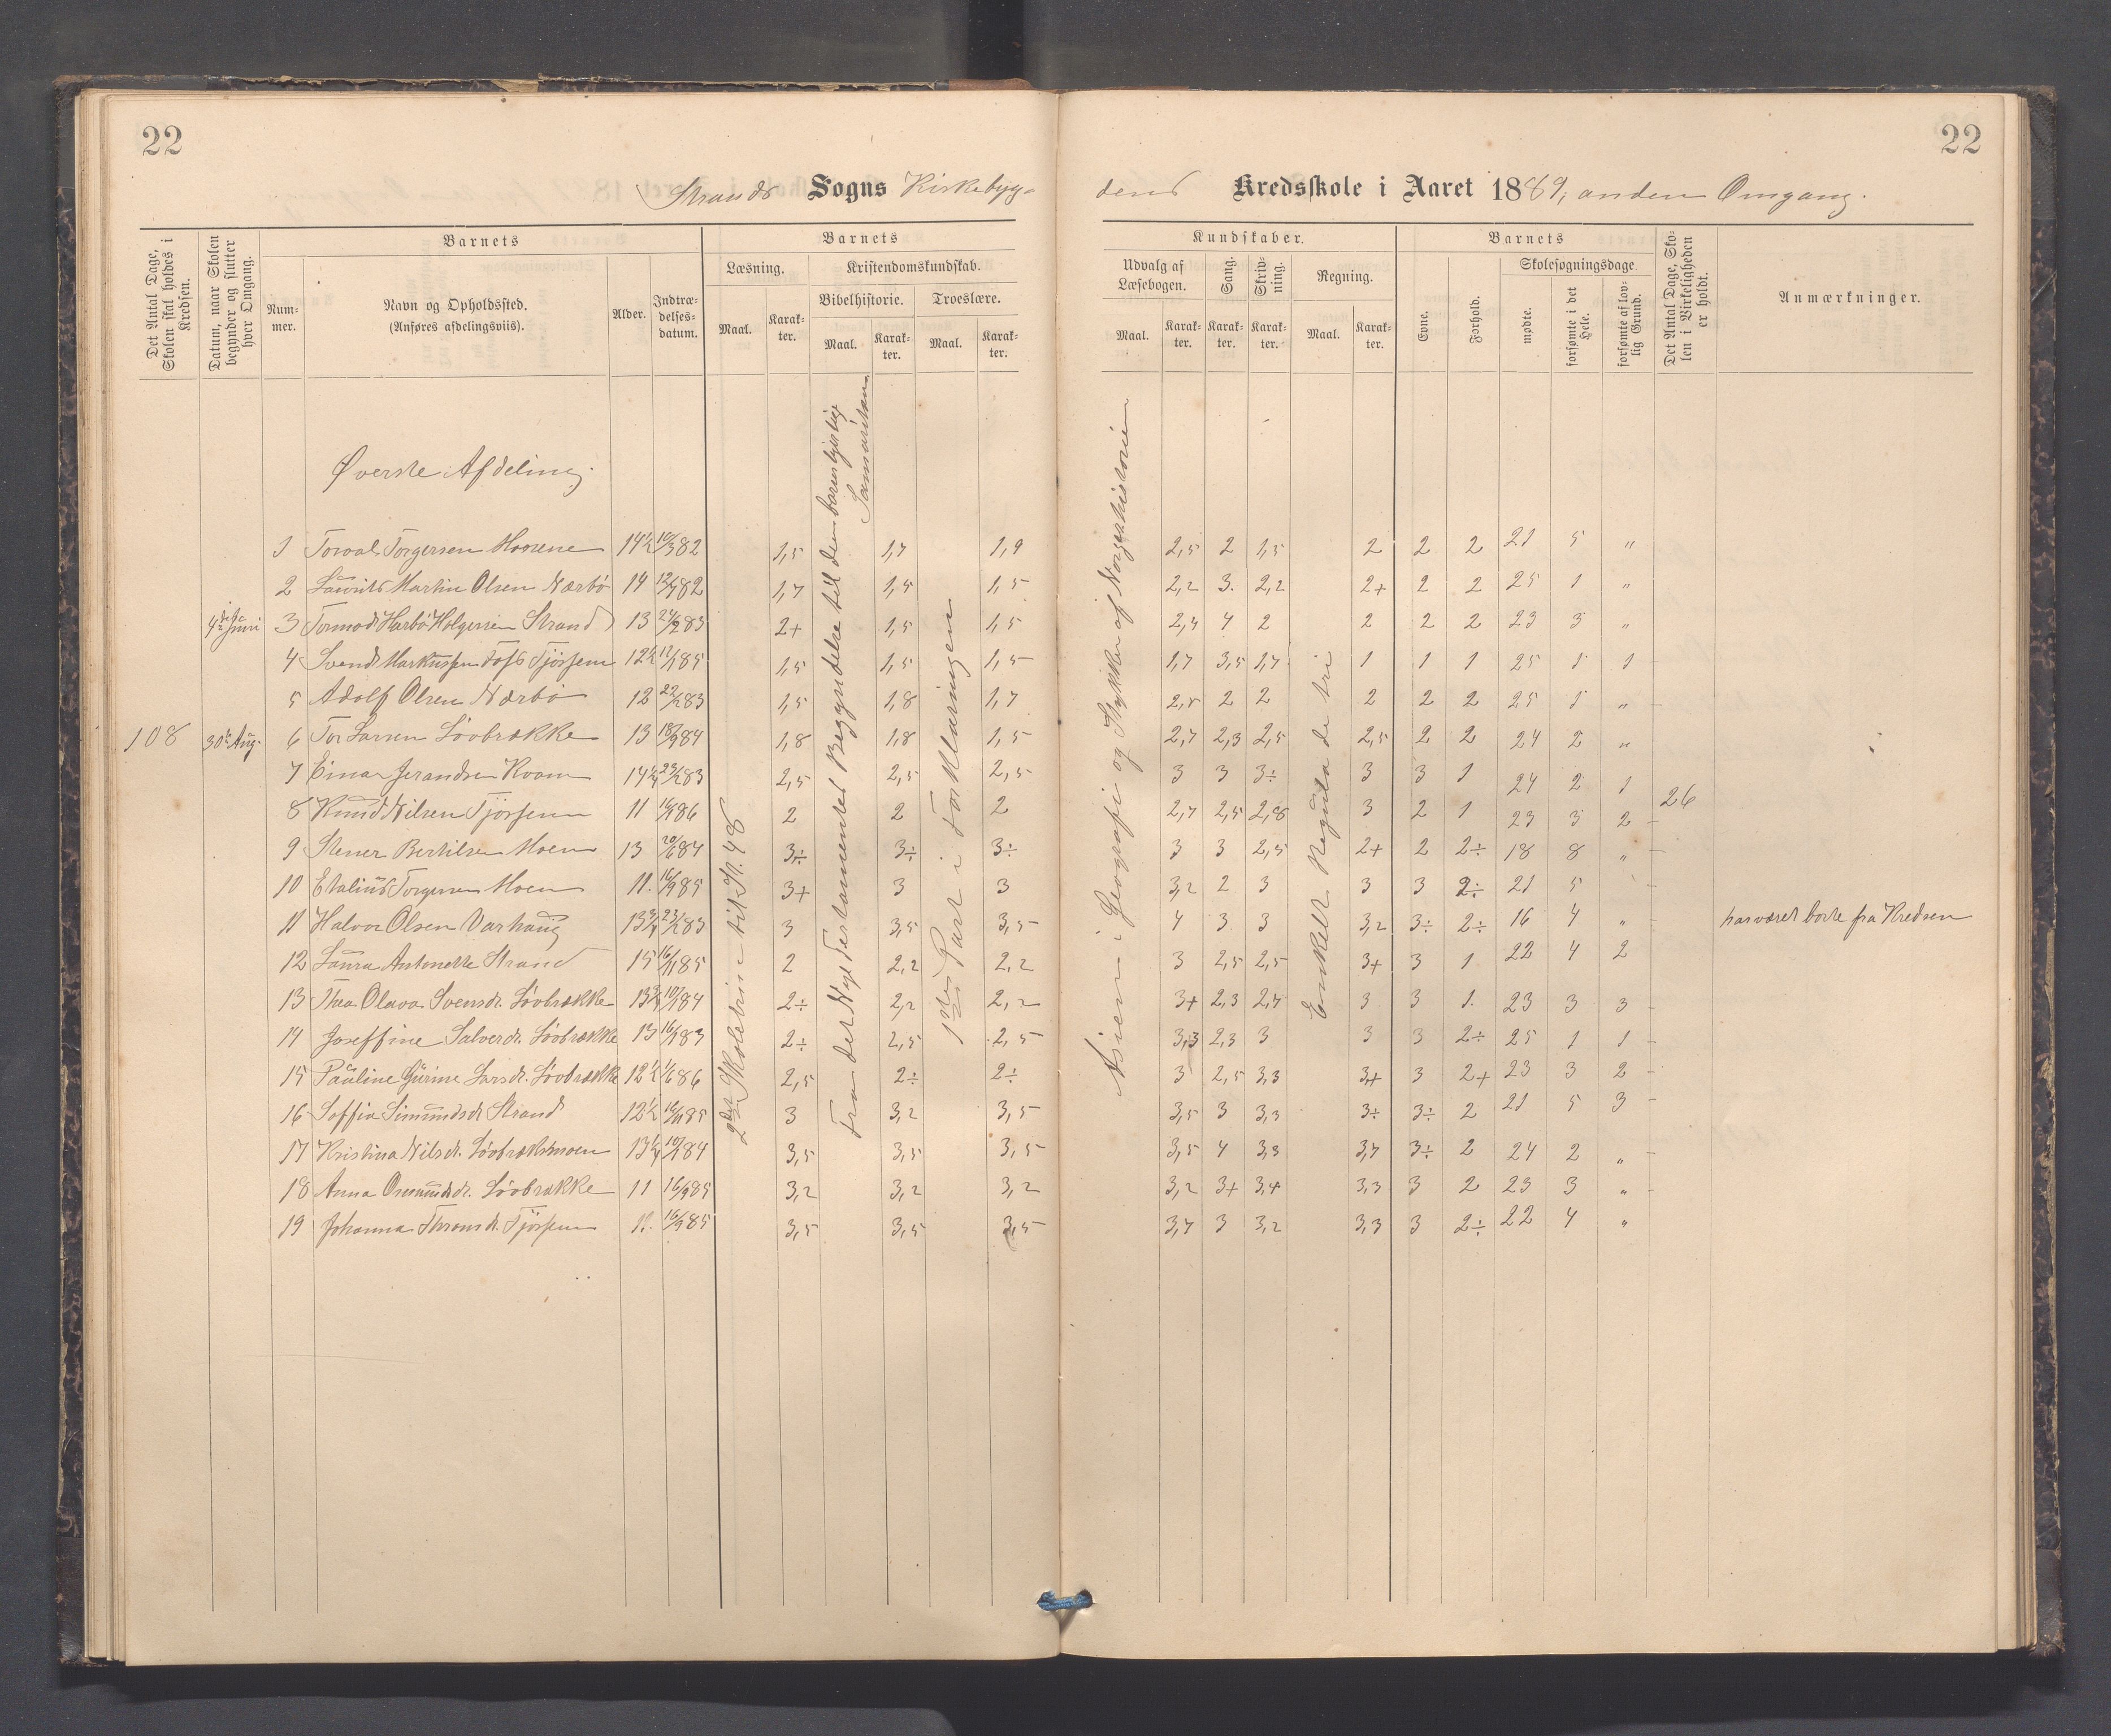 22
22
Strands Sogns Kirkebyg-
dens Kredsskole i Aaret 1889, anden Omgang.
Det Antal Dage, Skolen skal holdes i Kredsen.
Datum, naar Skolen begynder og slutter hver Omgang.
Barnets
Nummer.
Navn og Opholdssted. (Anføres afdelingsviis).
Alder.
Indtrædelsesdatum.
Barnets
Læsning.
Maal.
Karakter.
Kristendomskundskab.
Bibelhistorie.
Maal.
Karakter.
Troeslære.
Maal.
Karakter.
Kundskaber.
Udvalg af Læsebogen.
Maal.
Karakter.
Sang.
Karakter.
Skrivning.
Karakter.
Regning.
Maal.
Karakter.
Barnets
Evne.
Forhold.
Skolesøgningsdage.
mødte.
forsømte i det Hele.
forsømte af lovlig Grund.
Det Antal Dage, Skolen i Virkeligheden er holdt.
Anmærkninger.
Øverste Afdeling.
108
4de Juni
30te Aug.
2den Skolebine til St. 48
Fra det Nye Testamentes Begyndelse til den barmhjertige Samaritan.
1ste Part i Forklaringen
Asien i Geografi og Stykker af Norgeshistorien
Enkelt Regula de tri
26
1 Torval Torgersen Moene 14½ 10/3 82 1,5 1,7 1,9 2,5 2 1,5 2 2 2 21 5 "
2 Laurits Martin Olsen Nærbö 14 12/7 82 1,7 1,5 1,5 2,2 3. 2,2 2+ 2 2 25 1 "
3 Tormod Harbö Holgersen Strand 13 2+ 1,5 1,5 2,4 4 2 2 2 2 23 3 "
4 Svend Markussen Tofs Tjössem 12½ 1,5 1,5 1,5 1,7 3,5 1,7 1 1 1 25 1 1
5 Adolf Olsen Nærbö 12 22/2 83 1,5 1,8 1,7 2,5 2 2 2 2 2 25 1 "
6 Tor Larsen Løvbrække 13 18/9 84 1,8 1,8 1,5 2,7 2,3 2,5 2,5 2 2 24 2 "
7 Einar Jerandsen Kvam 14¼ 23/2 83 2,5 2,5 2,5 3 3 3÷ 3 3 1 24 2 1
8 Knud Nilsen Tjössem 11 2 2 2 2,7 2,5 2,8 3 2 1 23 3 2
9 Stener Bertilsen Moen 13 20/6 84 3÷ 3÷ 3÷ 3 3 2,5 2+ 2 2÷ 18 8 "
10 Etalius Torgersen Moen 11. 16/9 85 3+ 3 3 3,2 2 3 3 3 2÷ 21 5
11 Halvor Olsen Varhaug 13¾ 23/2 83 3 3,5 3,5 4 3 3 3,2 3÷ 2÷ 16 4 " har været borte fra Kredsen
12 Laura Antonette Strand 15 16/11 85 2 2,2 2,2 3 2,5 2,5 3+ 3 1 22 4 2
13 Thea Olava Svensdt. Løvbrække 13¾ 2÷ 2,2 2,2 3+ 2,3 2,7 3 3 1. 23 3 3
14 Joseffine Salverdt. Løvbrække 13 2÷ 2,5 2,5 3,3 2,3 3 3 3 2÷ 25 1 1
15 Pauline Gurine Larsdt. Løvbrække 12½ 1/6 86 2,5 2÷ 2÷ 3 2,5 3,3 3+ 3 2+ 23 3 2
16 Soffia Simundsdt Strand 12½ 16/11 85 3 3,2 3,5 3,5 3 3,3 3÷ 3÷ 2 21 5 3
17 Kristina Nilsdt. Løvbrækmoen 13¼ 3,5 3,5 3,5 3,5 4 3,3 3,7 3÷ 2 24 2 "
18 Anna Osmundsdt. Løvbrække 11 16/9 85 3,2 3,2 3,2 3,2 3+ 3,4 3,3 3 2 23 3 "
19 Johanna Thronsdt. Tjössem 16/9 85 3,5 3,5 3,5 3,7 3 3,2 3,3 3 2÷ 22 4 "